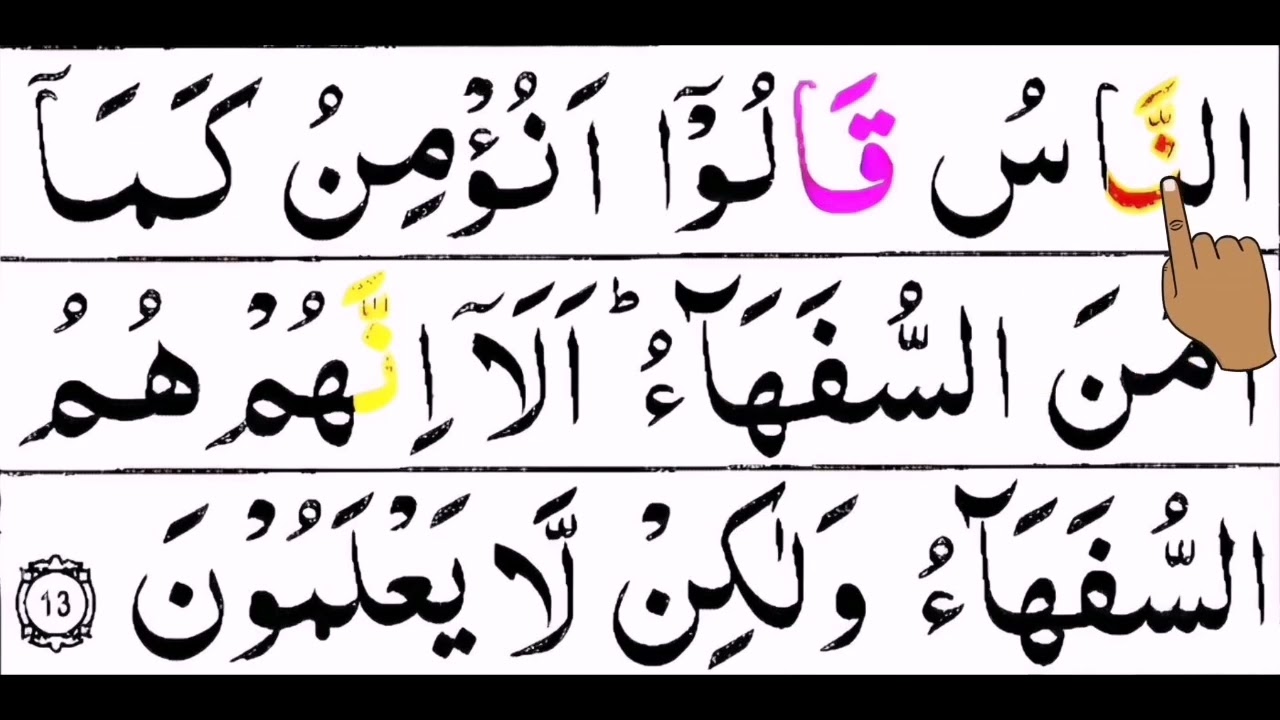 النَّاسُ قَالُوْٓا اَنُؤْمِنُ كَمَآ
اٰمَنَ السُّفَهَآءُ ؕ اَلَآ اِنَّهُمْ هُمُ
السُّفَهَآءُ وَلٰكِنْ لَّا يَعْلَمُوْنَ 13